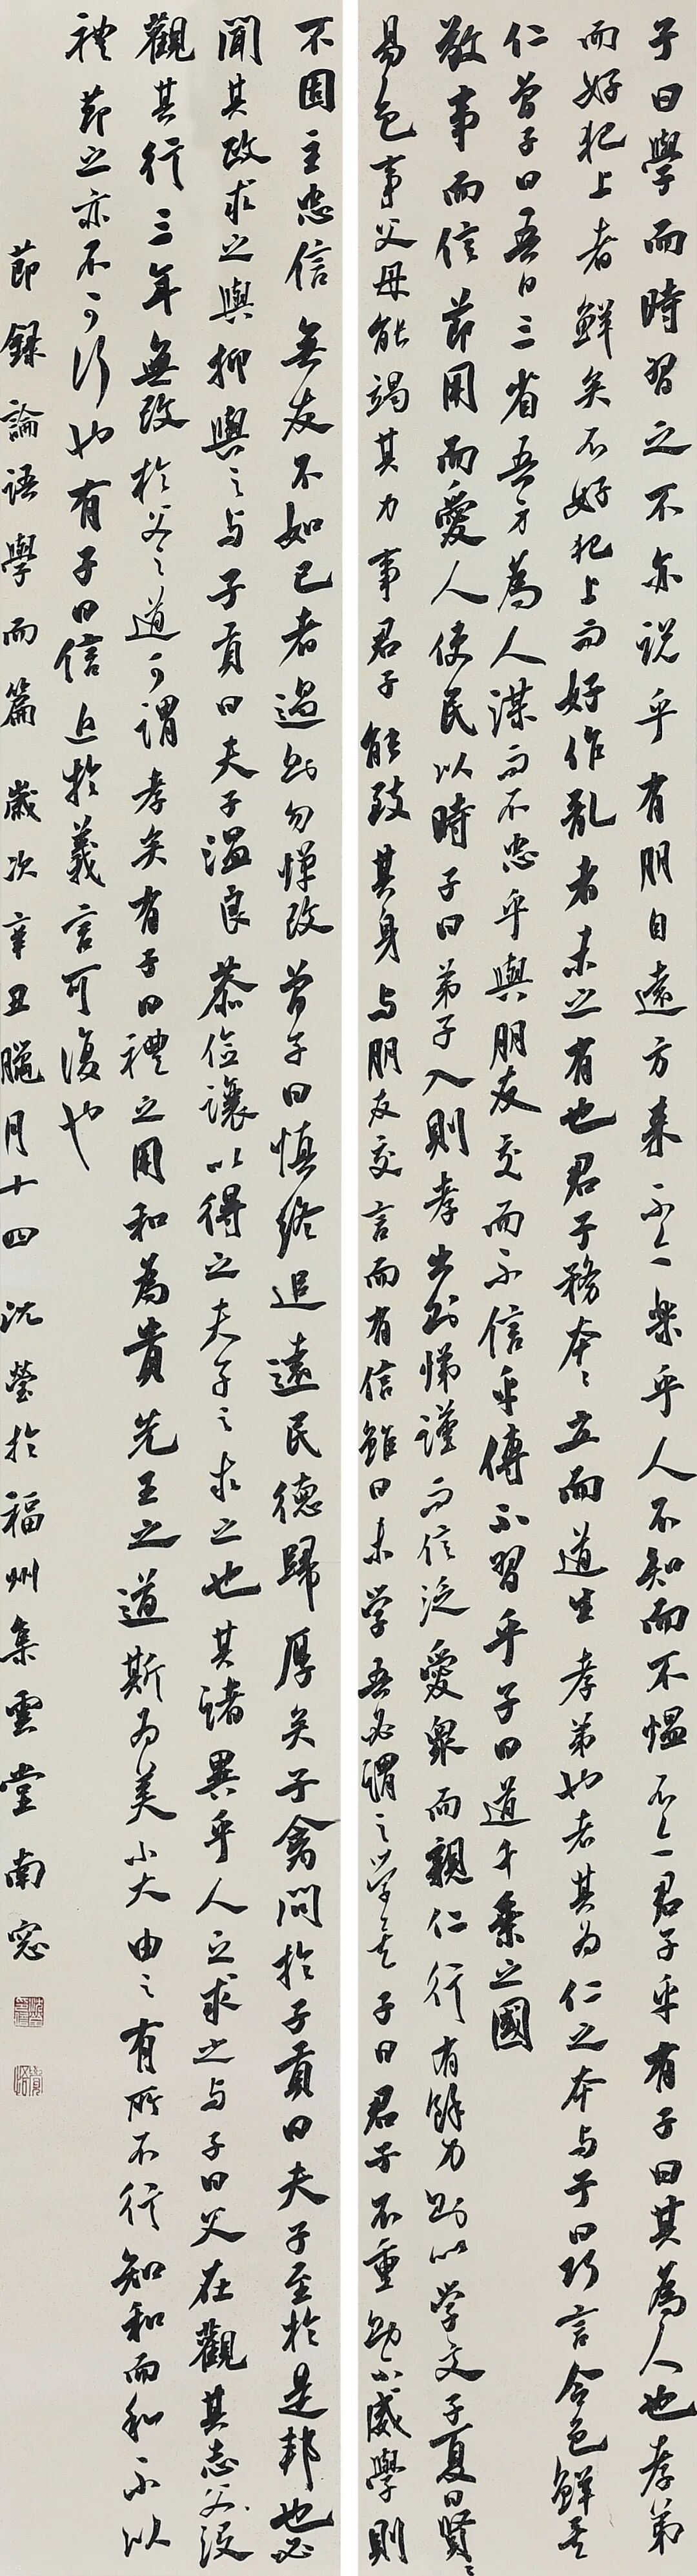 子曰學而時習之不亦说乎有朋自遠方来不亦樂乎人不知而不愠不亦君子乎有子曰其為人也孝弟
而好犯上者鮮矣不好犯上而好作亂者未之有也君子務本〻立而道生孝弟也者其为仁之本与子曰巧言令色鮮矣
仁曾子曰吾日三省吾身為人谋而不忠乎與朋友交而不信乎傳不習乎子曰道千乘之國
敬事而信節用而愛人使民以時子曰弟子入則孝出則悌谨而信泛愛眾而親仁行有餘力則以学文子夏曰賢〻
易色事父母能竭其力事君子能致其身与朋友交言而有信雖曰未学吾必謂之学矣子曰君子不重則不威學則
不固主忠信無友不如己者過則勿憚改曾子曰慎終追遠民德歸厚矣子禽問於子貢曰夫子至於是邦也必
聞其政求之與抑與之与子貢曰夫子温良恭儉讓以得之夫子之求之也其诸異乎人之求之与子曰父在觀其志父没
觀其行三年無改於父之道可謂孝矣有子曰禮之用和為貴先王之道斯为美小大由之有所不行知和而和不以
禮節之亦不可行也有子曰信近於義言可復也
節録論语學而篇 歲次辛丑臘月十四 沈瑩於福州集雲堂南窓